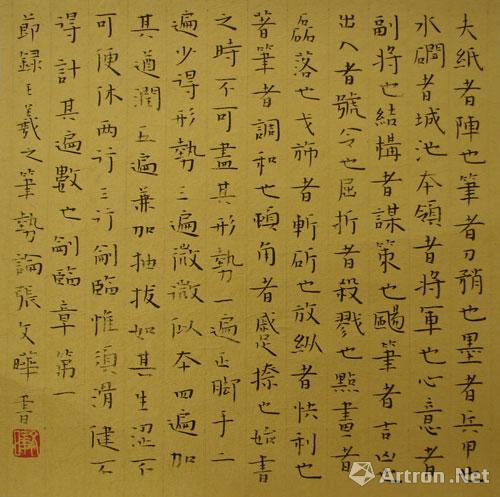 夫紙者陣也筆者刀矟也墨者兵甲也
水研者城池本領者將軍也心意者
副將也結構者謀策也颺筆者吉凶
出入者號令也屈折者殺戮也點畫者
磊落也戈旆者斬斫也放縱者快利也
著筆者調和也頓角者蹙捺也始書
之時不可盡其形勢一遍正脚手二
遍少得形勢三遍微微似本四遍加
其遒潤五遍兼加抽拔如其生澀不
可便休兩行三行創臨惟須滑健不
得計其遍數也創臨章第一
節録王羲之筆勢論張文曄書
Artron.Net